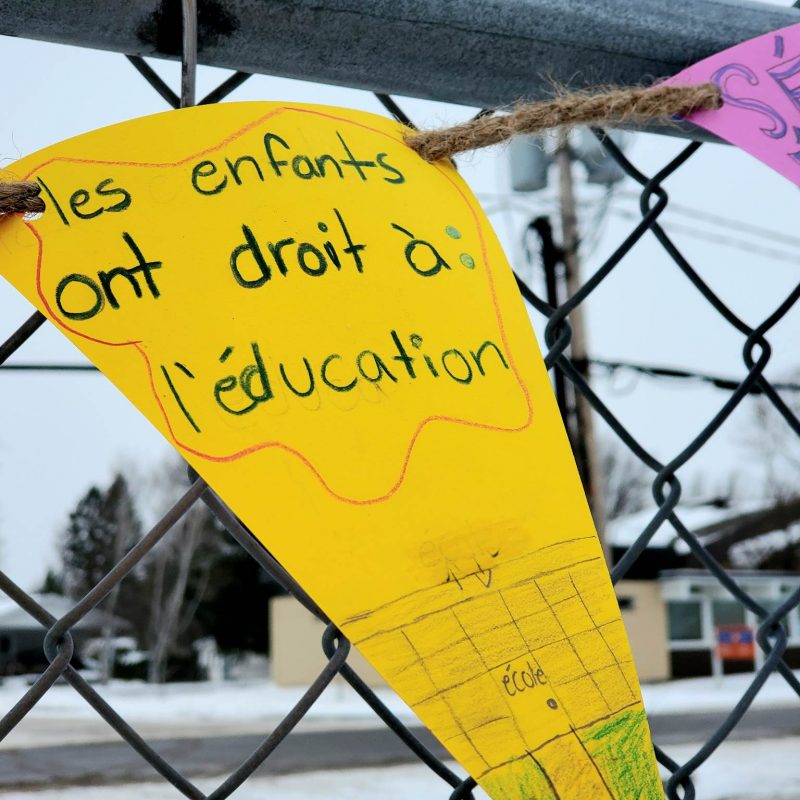 les enfants
ont droit à :
l'éducation
école